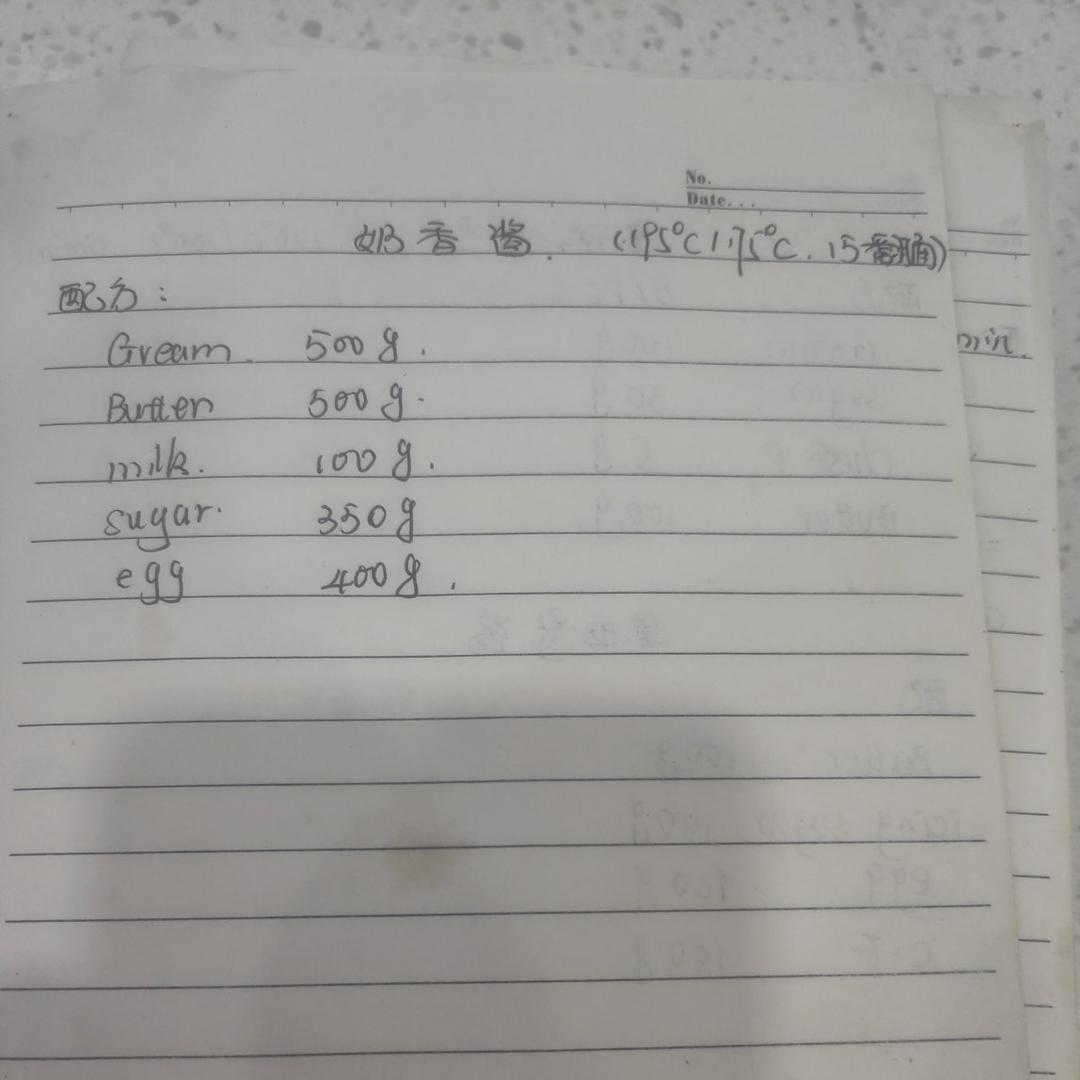 No.
Date...
奶香酱. (195°C/175°C. 15
配方:
Gream 500g.
min.
Butter 500g.
milk. 100g.
sugar. 350g
egg 400g.